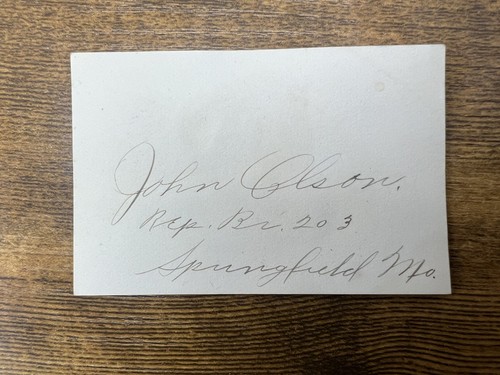 John Olson.
Rep. Br. 203
Springfield Mo.